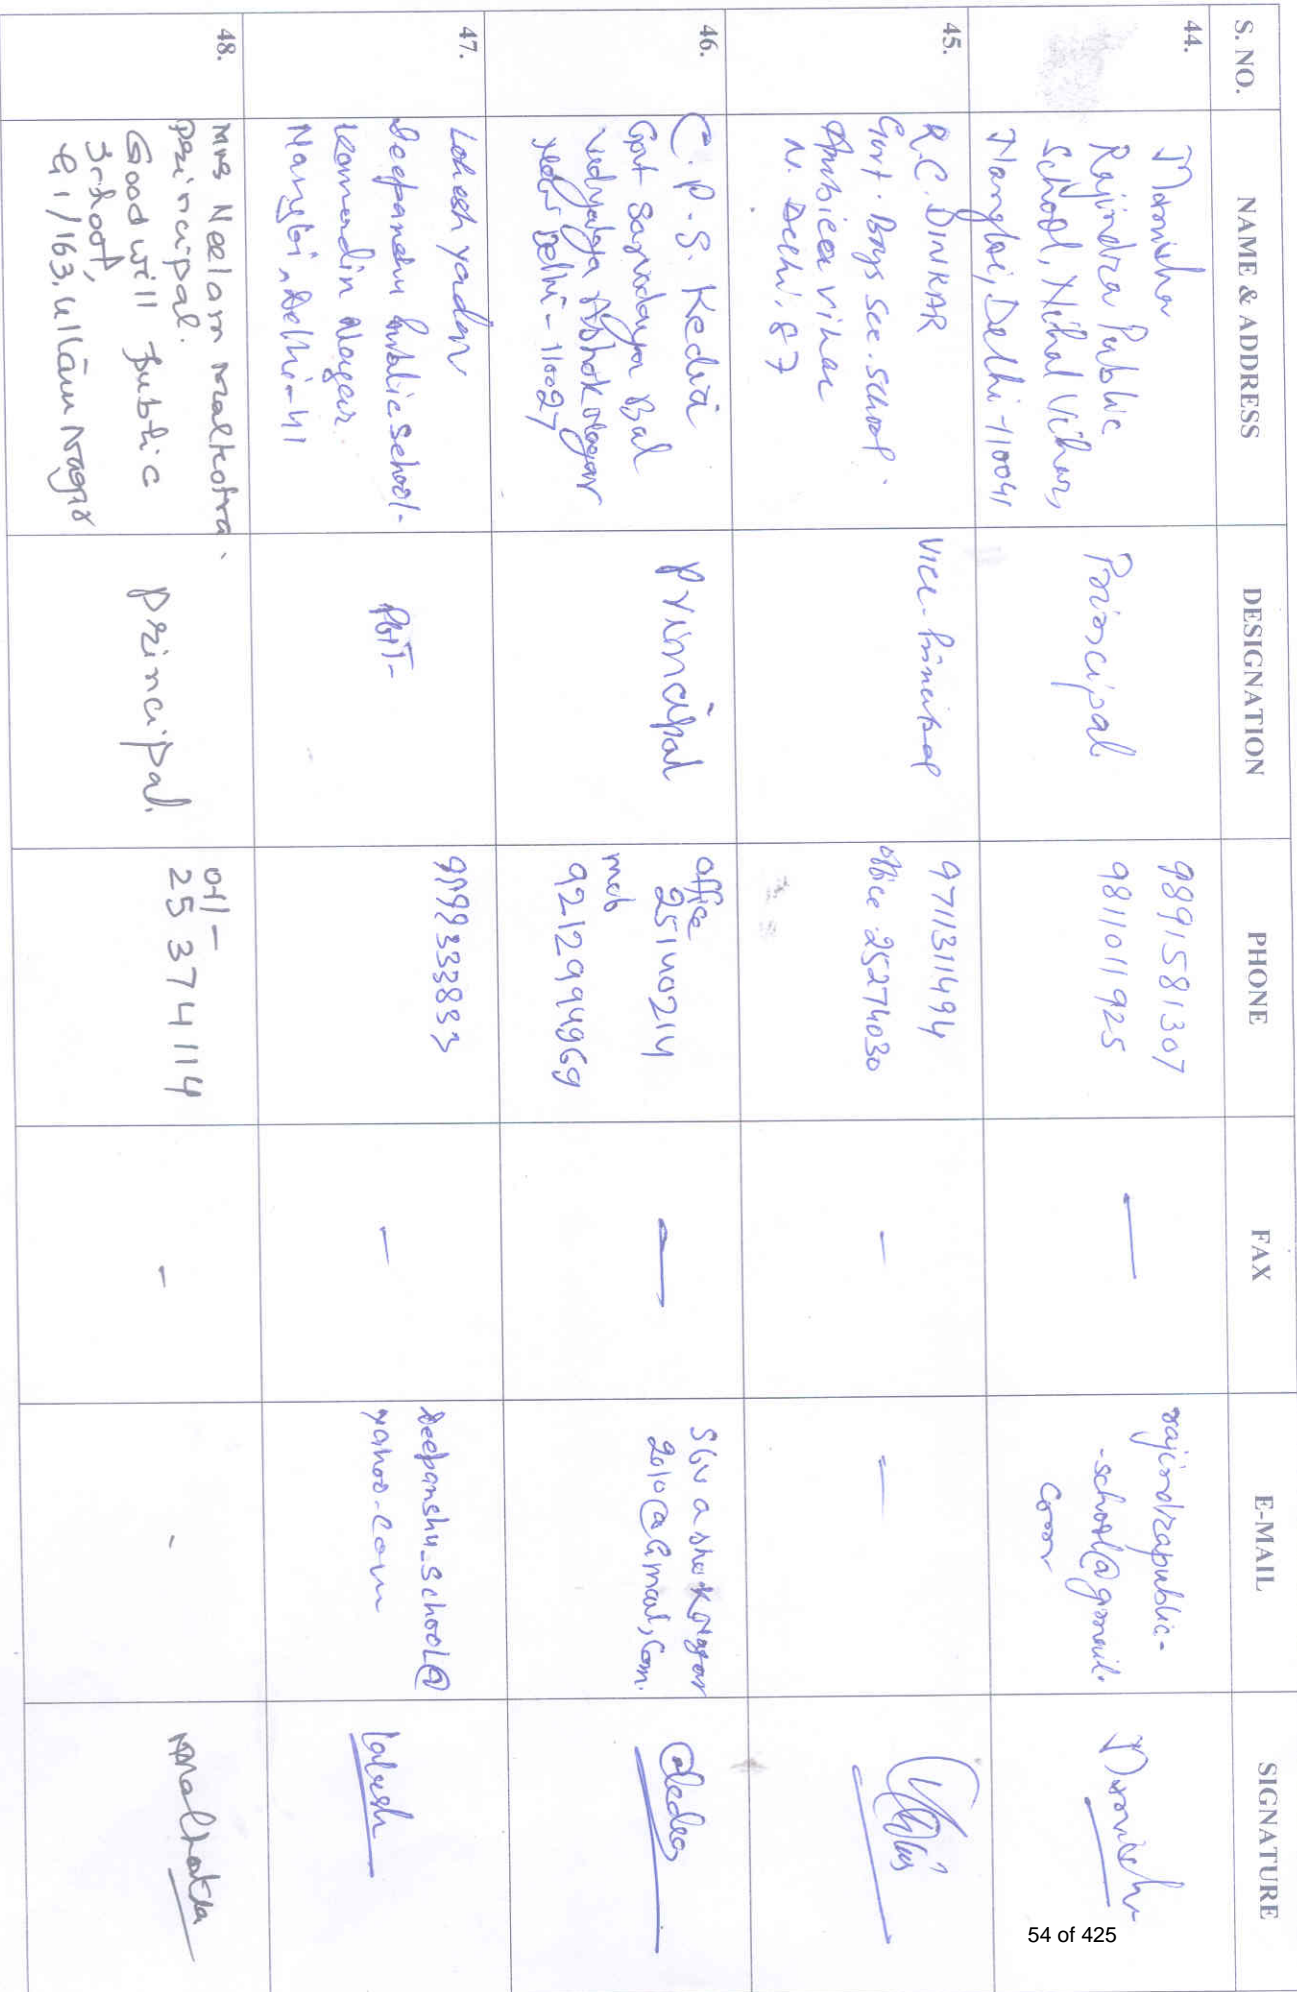 S. NO. NAME & ADDRESS DESIGNATION PHONE FAX E-MAIL SIGNATURE
44.
Manisha
Rajindra Public
School, Nihal Vihar,
Nangloi, Delhi-110041
Principal
9891581307
9811011925
—
rajindrapublic-
-school@gmail.
com
Manisha
45.
R.C. DINKAR
Govt. Boys Sec. School.
Ambica Vihar
N. Delhi. 87
Vice-Principal
9711311494
office 25274030
—
—
46.
C. P. S. Kedia
Govt Sarvodaya Bal
Vidyalaya Ashok Nagar
New Delhi-110027
Principal
office
25140214
mob
9212994969
—
SGV ashoknagar
2010@Gmail,Com.
47.
Lokesh yadav
Deepanshu Public School-
Kamrudin Nagar
Nangloi, Delhi-41
9999333833
—
deepanshu_school@
yahoo.com
Lokesh
48.
Mrs Neelam Malhotra.
Principal.
Good will Public
School,
G1/163, Uttam Nagar
Principal.
off-
25374114
-
-
Malhotra
54 of 425